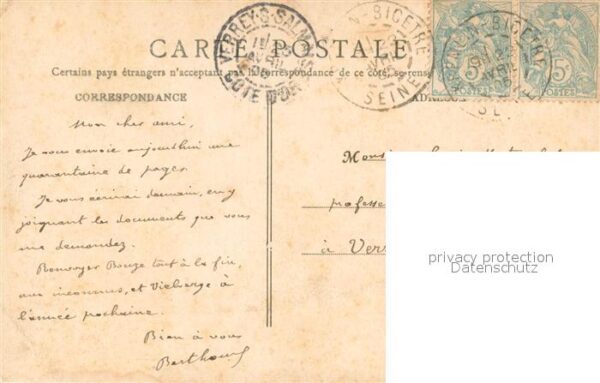 CARTE POSTALE
Certains pays étrangers n'acceptant pas la correspondance de ce côté, se rens
CORRESPONDANCE
VERREY-S-SALM
CÔTE D'OR
BICETRE
SEINE
BICETRE
5c
POSTES
Mon cher ami,
Je vous envoie aujourd'hui une
quarantaine de pages.
Je vous écrirai demain, en y
joignant les documents que vous
me demandez.
tout à la fin,
aux inconnus, et Vieberge à
l'année prochaine.
Bien à vous
Mons
profess
à Ver
privacy protection
Datenschutz